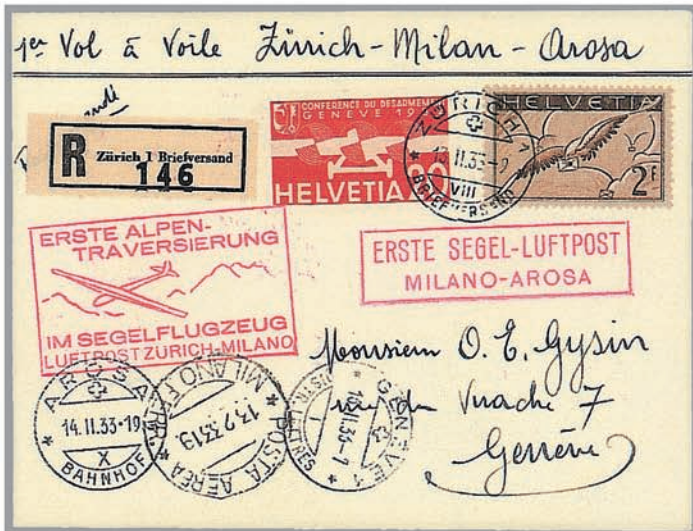 1er Vol à Voile Zürich-Milan-Arosa
R Zürich 1 Briefversand
146
CONFERENCE DU DESARMEMENT
GENEVE 19
HELVETIA
ZÜRICH 1
13.II.33-
VIII
BRIEFVERSAND
HELVETIA
2F
ERSTE ALPEN-
TRAVERSIERUNG
IM SEGELFLUGZEUG
LUFTPOST ZÜRICH-MILANO
ERSTE SEGEL-LUFTPOST
MILANO-AROSA
Monsieur O. E. Gysin
rue du Vuache 7
Genève
AROSA
14.II.33-19
X
BAHNHOF
MILANO FERR.
13.2.33 19
POSTA AEREA
GENÈVE 1
II.33-7